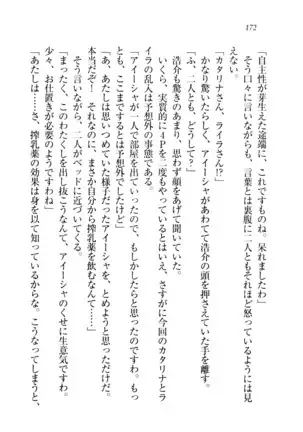 172
「自主性が芽生えた途端に、二人っきりでこれですもの。呆れましたわ」
そう口々に言いながらも、言葉とは裏腹に二人ともそれほど怒っているようには見
えない。
「カタリナさん、ライラさん!?」
かなり驚いたらしく、アイーシャがあわてて浩介の頭を押さえていた手を離す。
「ふ、二人とも、どうして?」
浩介も驚きのあまり、思わず顔をあげて聞いていた。
いくら、実質的に4Pを二度もやっているとはいえ、さすがに今回のカタリナとラ
イラの乱入は予想外の事態である。
「アイーシャが一人で部屋を出ていったので、もしかしたらと思ったのですわ。けれ
ども、ここまでするとは予想外でしたけど」
「あ、あたしは思いつめていた様子だったアイーシャを、心配しただけだぞ。ほ、
本当だぞ! それなのに、まさか自分から搾乳薬を飲むなんて」
そう言いながら、二人がベッドに近づいてくる。
「まったく、このわたくしを出し抜こうなんて、アイーシャのくせに生意気ですわ。
少々、お仕置きが必要のようですわね」
「あたしは……さ、搾乳薬の効果は身を以て知っているからな。こうなってしまうと、